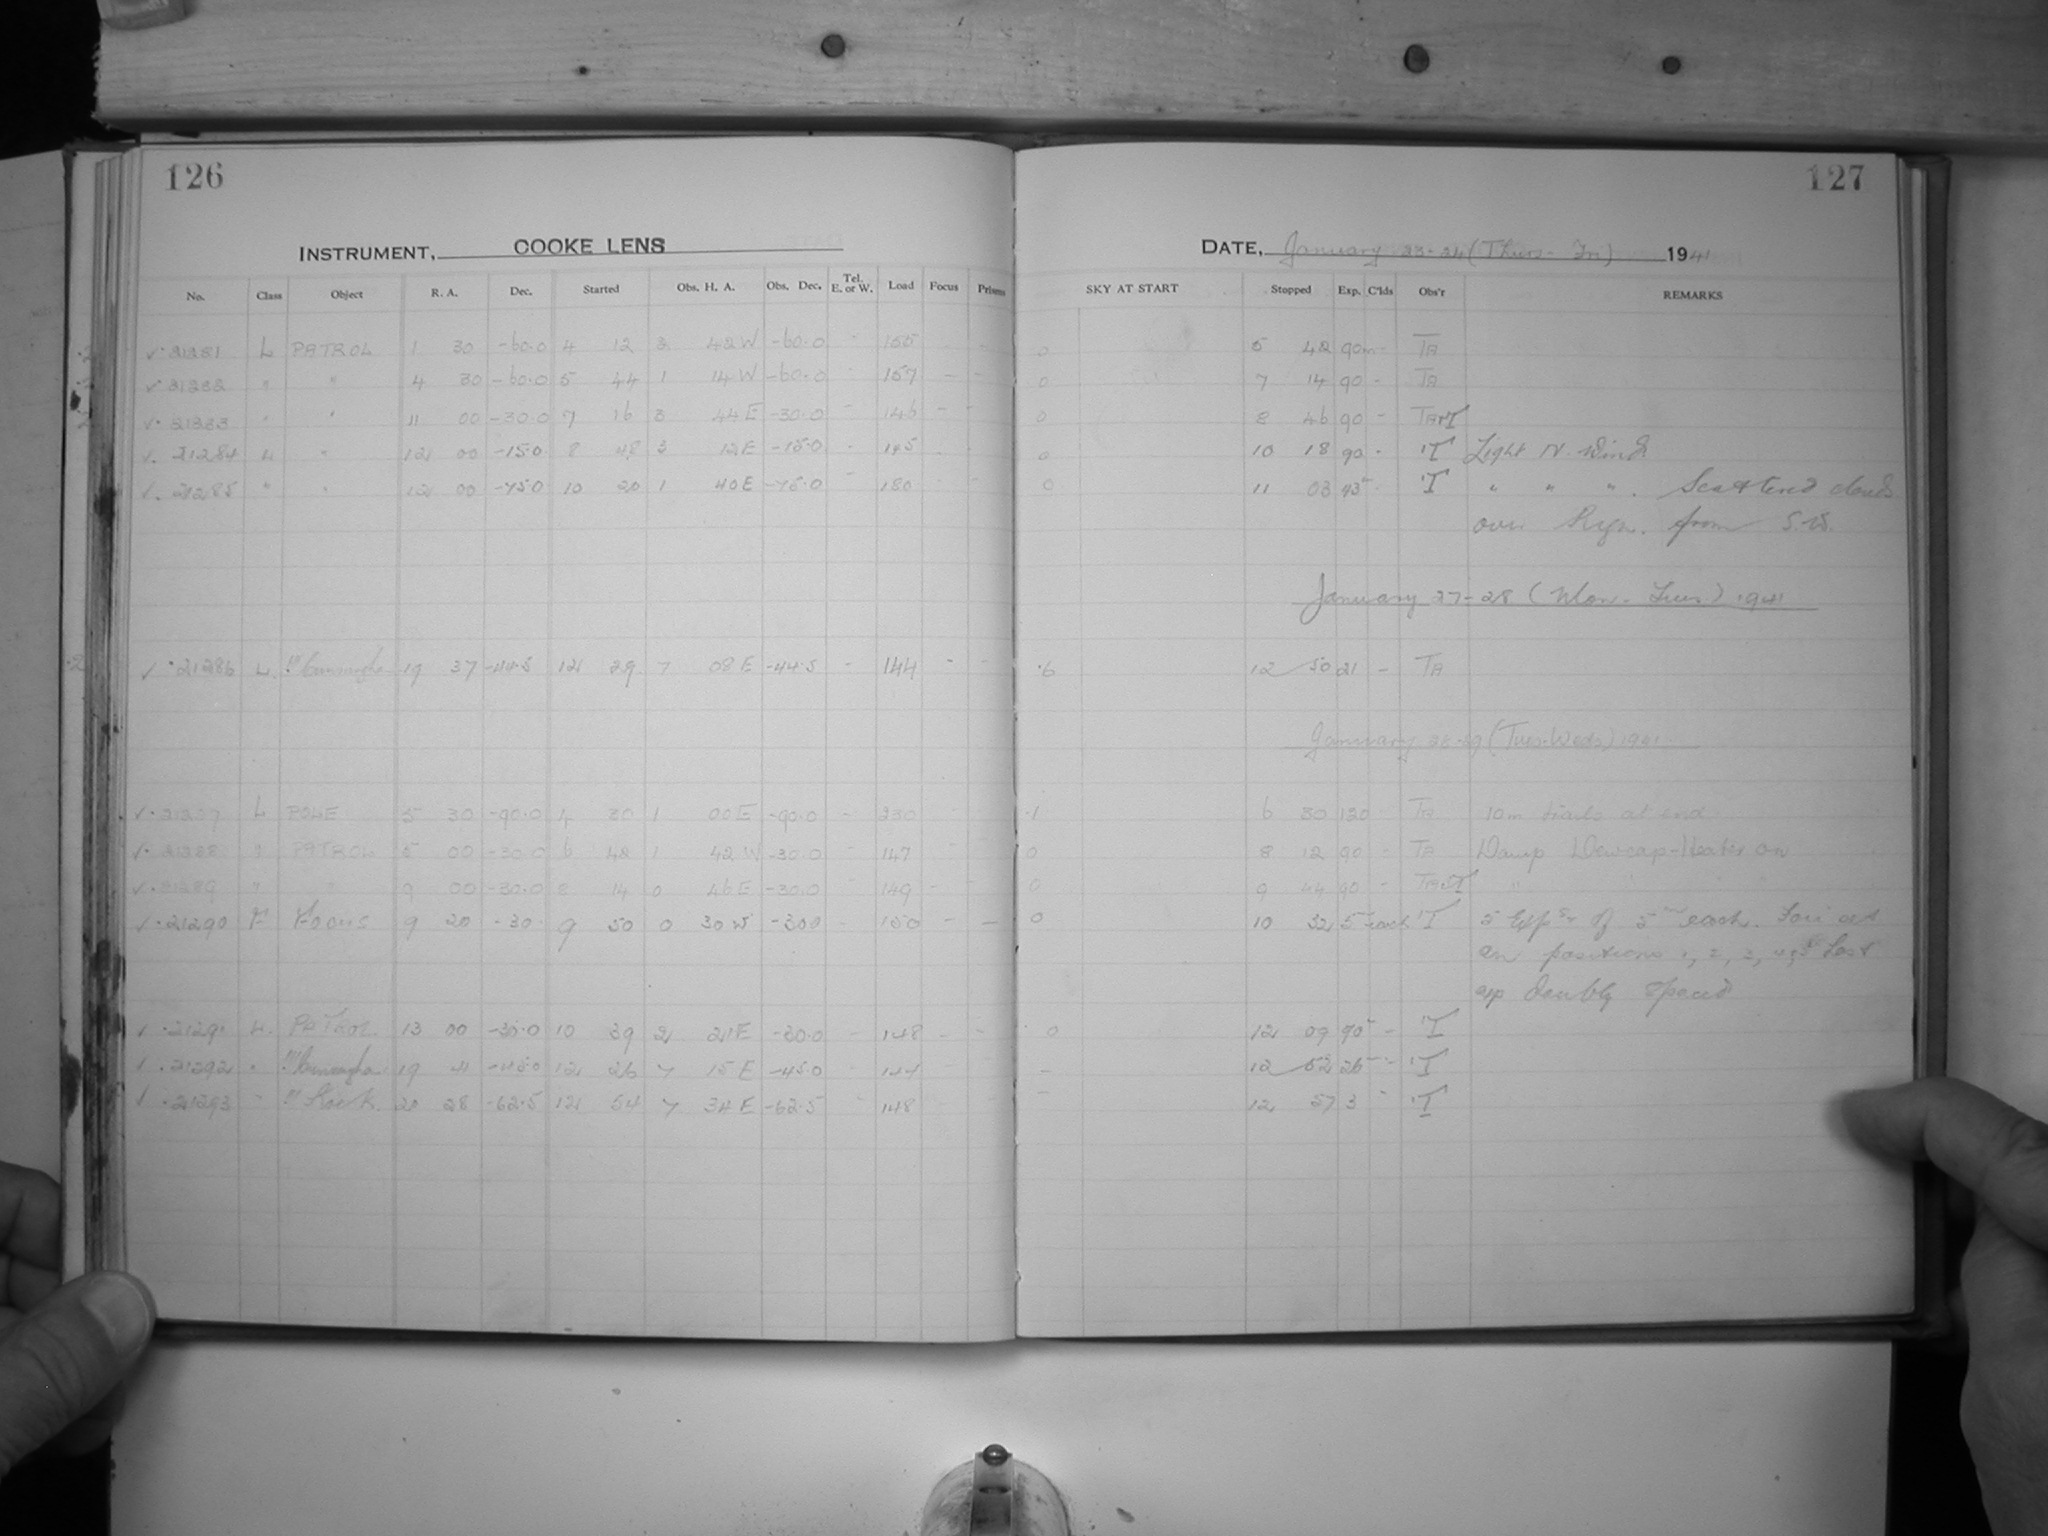 126
127
INSTRUMENT, COOKE LENS
DATE, January 23-24 (Thurs - Fri) 1941
No. Class Object R. A. Dec. Started Obs. H. A. Obs. Dec. Tel. E. or W. Load Focus Prisms SKY AT START Stopped Exp. C'lds Obs'r REMARKS
✓ 21281 L PATROL 1 30 -60.0 4 12 2 42 W -60.0 - 155 0 5 42 90m - TA
✓ 21282 " " 4 30 -60.0 5 44 1 14 W -60.0 157 - - 0 7 14 90 - TA
✓ 21283 " " 11 00 -30.0 7 16 3 44 E -30.0 - 146 - - 0 8 46 90 -
✓ 21284 L " 12 00 -15.0 8 48 3 12 E -15.0 - 145 0 10 18 90 - T Light N. Wind.
✓ 21285 " " 12 00 -75.0 10 20 1 40 E -75.0 - 180 0 11 03 43 T " " " . Scattered clouds
over from S.W.
January 27-28 (Mon - Tues) 1941
✓ 21286 L. !!! Cunningham 19 37 -44.5 12 29 7 08 E -44.5 - 144 - - .6 12 50 21 - TA
January 28-29 (Tues-Weds) 1941
✓ 21287 L POLE 5 30 -90.0 4 30 1 00 E -90.0 - 230 - .1 6 30 120 TA 10m trails at end
✓ 21288 " PATROL 5 00 -30.0 6 42 1 42 W -30.0 - 147 0 8 12 90 - TA Damp Dewcap-Heater on
✓ 21289 " " 9 00 -30.0 8 14 0 46 E -30.0 - 149 - - 0 9 44 90 -
✓ 21290 F FOCUS 9 20 -30 9 50 0 30 W -30.0 - 150 - - 0 10 32 5 each T 5 Exps of 5m each.
on positions 1, 2, 3, 4, 5 Last
exp doubly spaced
✓ 21291 L. PATROL 13 00 -30.0 10 39 2 21 E -30.0 - 148 - - 0 12 09 90 - T
✓ 21292 " !!! Cunningham 19 41 -45.0 12 26 7 15 E -45.0 - 147 - 12 52 26 - T
✓ 21293 " !!! 20 28 -62.5 12 54 7 34 E -62.5 - 148 - 12 57 3 - T